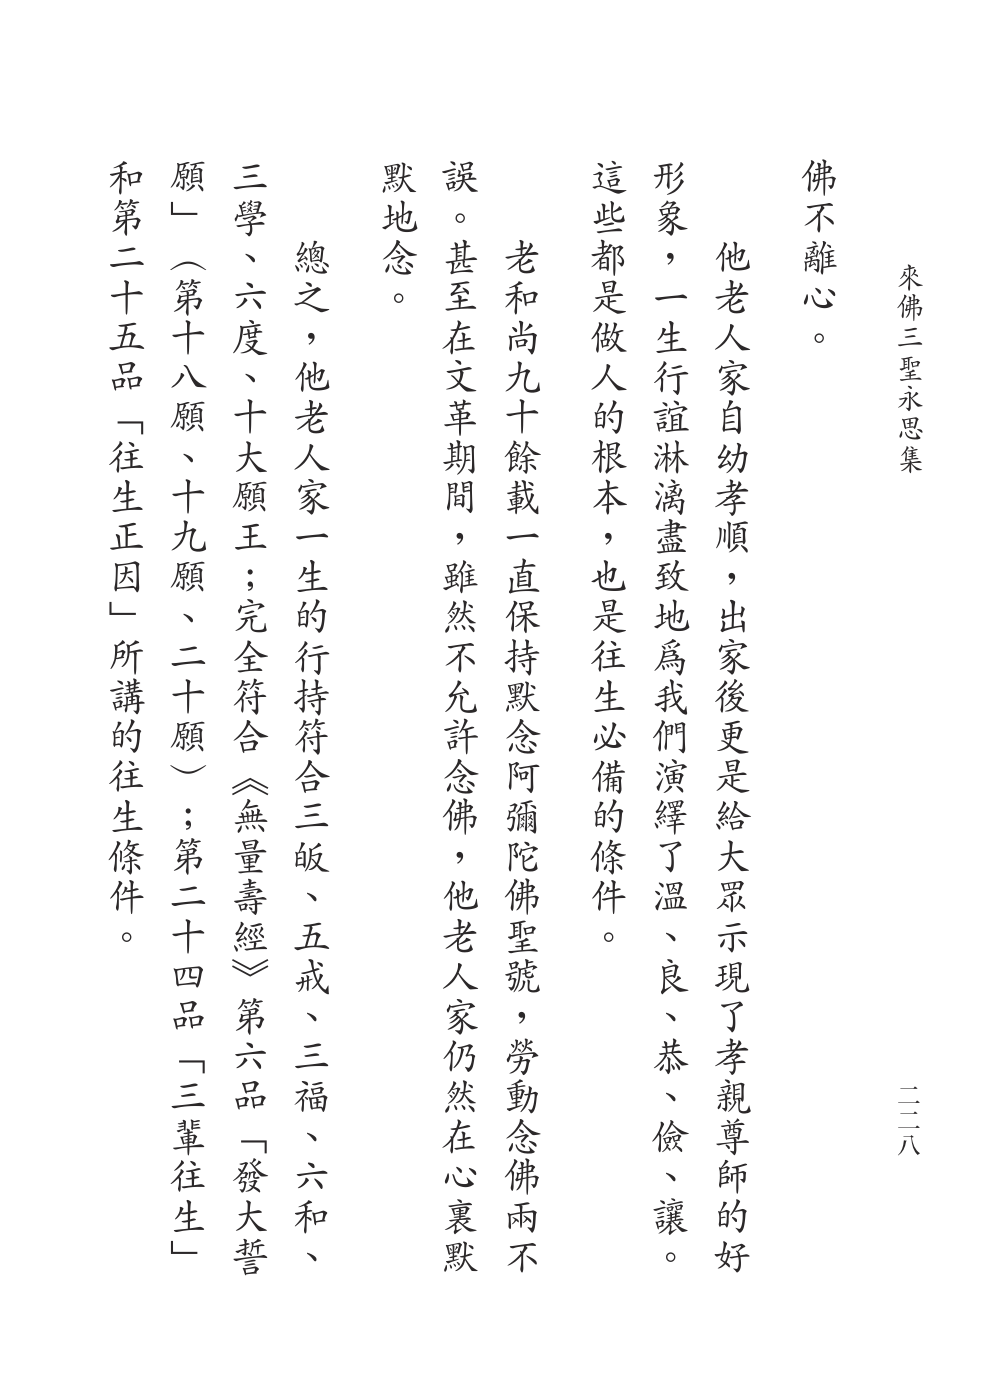 來佛三聖永思集
二二八
佛不離心。
他老人家自幼孝順，出家後更是給大眾示現了孝親尊師的好
形象，一生行誼淋漓盡致地爲我們演繹了溫、良、恭、儉、讓。
這些都是做人的根本，也是往生必備的條件。
老和尚九十餘載一直保持默念阿彌陀佛聖號，勞動念佛兩不
誤。甚至在文革期間，雖然不允許念佛，他老人家仍然在心裏默
默地念。
總之，他老人家一生的行持符合三皈、五戒、三福、六和、
三學、六度、十大願王；完全符合《無量壽經》第六品「發大誓
願」（第十八願、十九願、二十願）；第二十四品「三輩往生」
和第二十五品「往生正因」所講的往生條件。